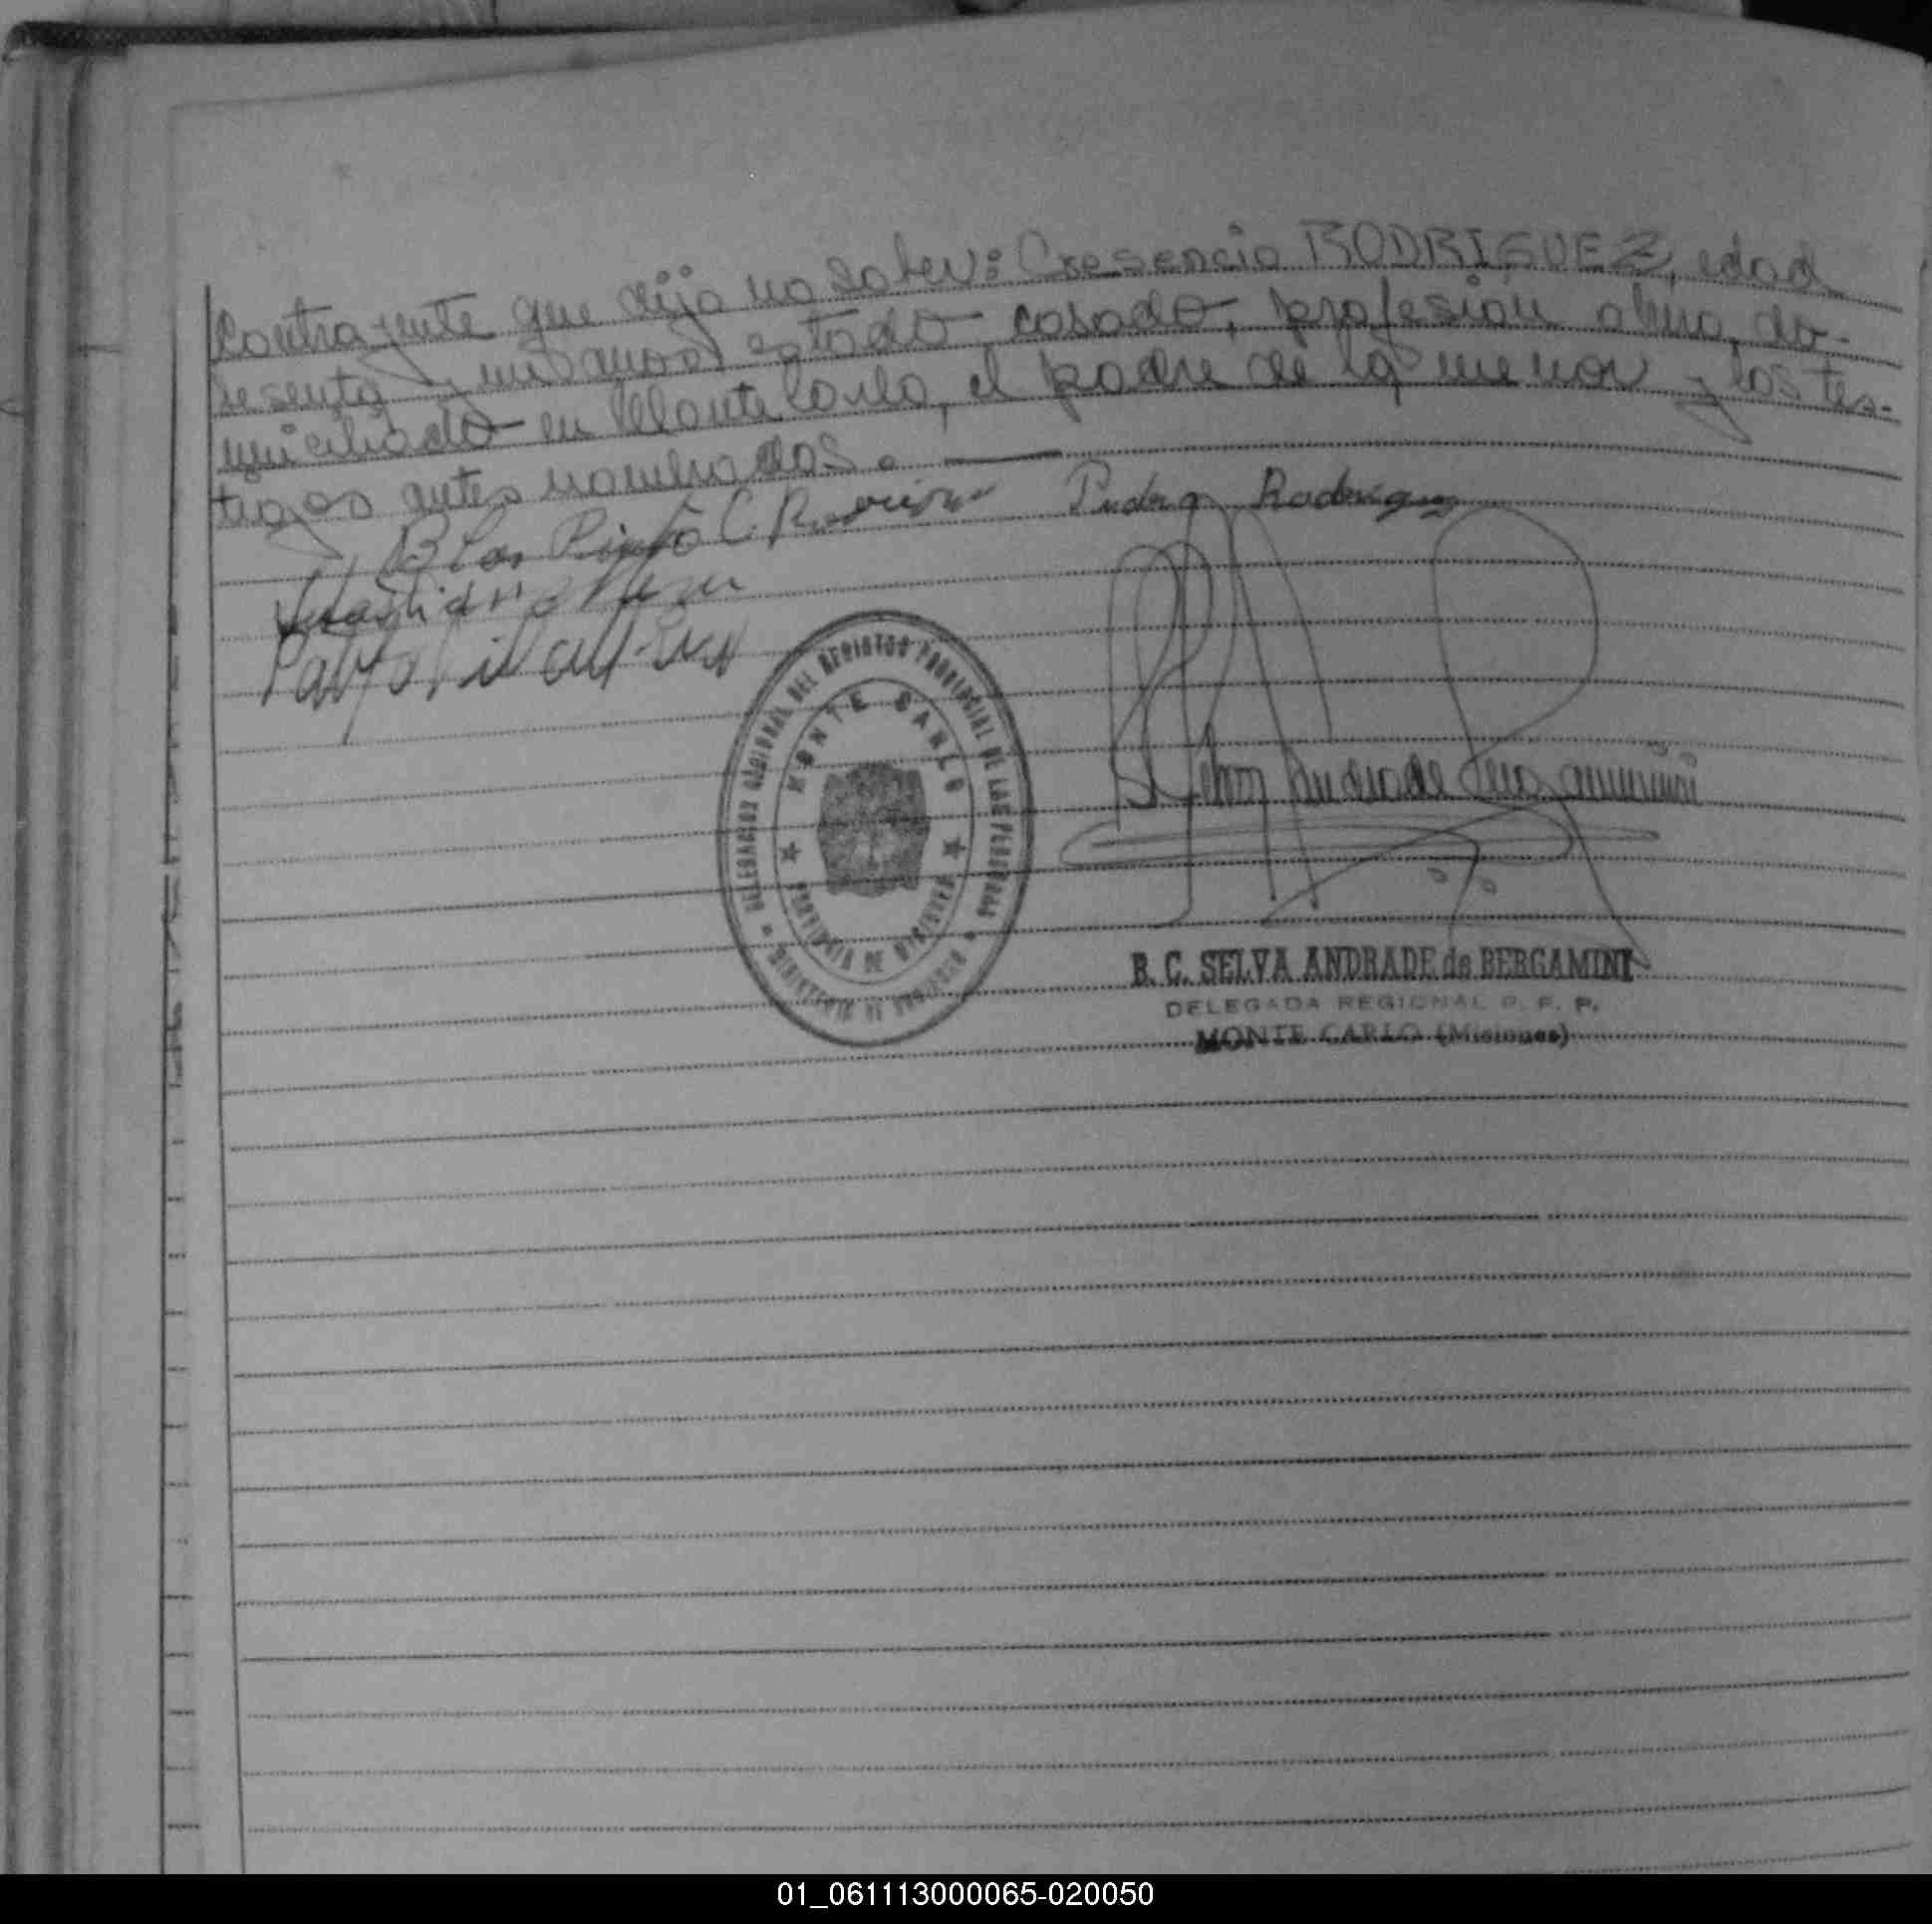 contrayente que dijo no saber: Cresencio RODRIGUEZ, edad
sesenta y un años, estado casado, profesión obrero, do-
miciliado en Monte Carlo, el padre de la menor y los tes-
tigos antes nombrados. —
Blas Pinto C. Pedro Rodriguez
Selva Andrade Bergamini
DELEGACION REGIONAL DEL REGISTRO PROVINCIAL DE LAS PERSONAS
MONTE CARLO
PROVINCIA DE MISIONES
MINISTERIO DE GOBIERNO
B. C. SELVA ANDRADE de BERGAMINI
DELEGADA REGIONAL R. P. P.
MONTE CARLO (Misiones)
01_061113000065-020050